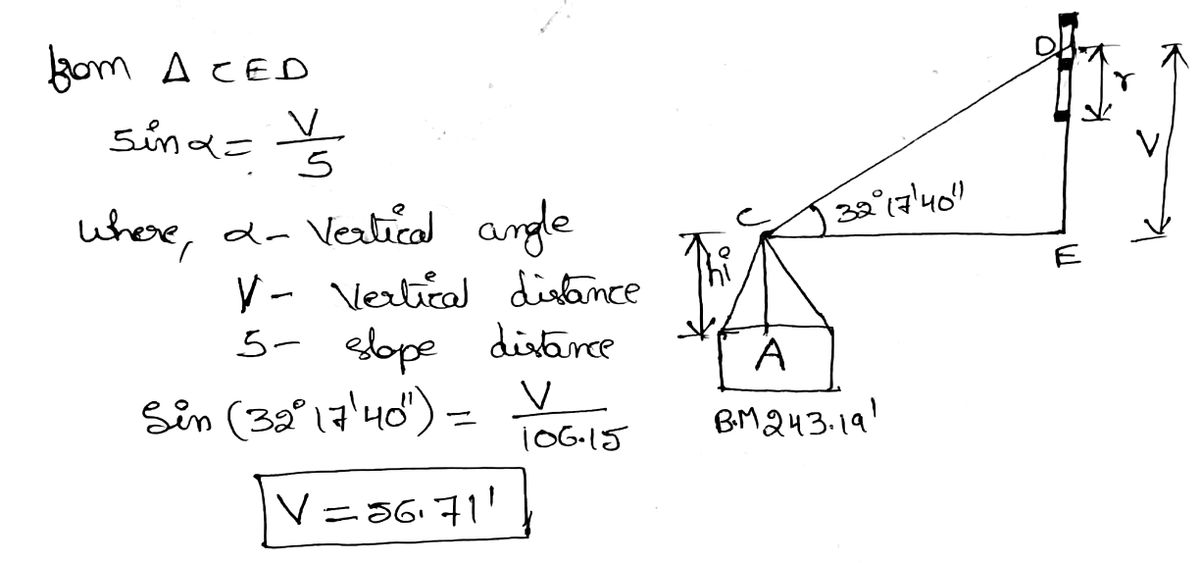 from Δ CED
Sin α = V
S
where, α - Vertical angle
V - Vertical distance
S - slope distance
Sin (32° 17' 40") = V
106.15
V = 56.71'
D
r
V
C
32° 17' 40"
E
hi
A
B.M 243.19'